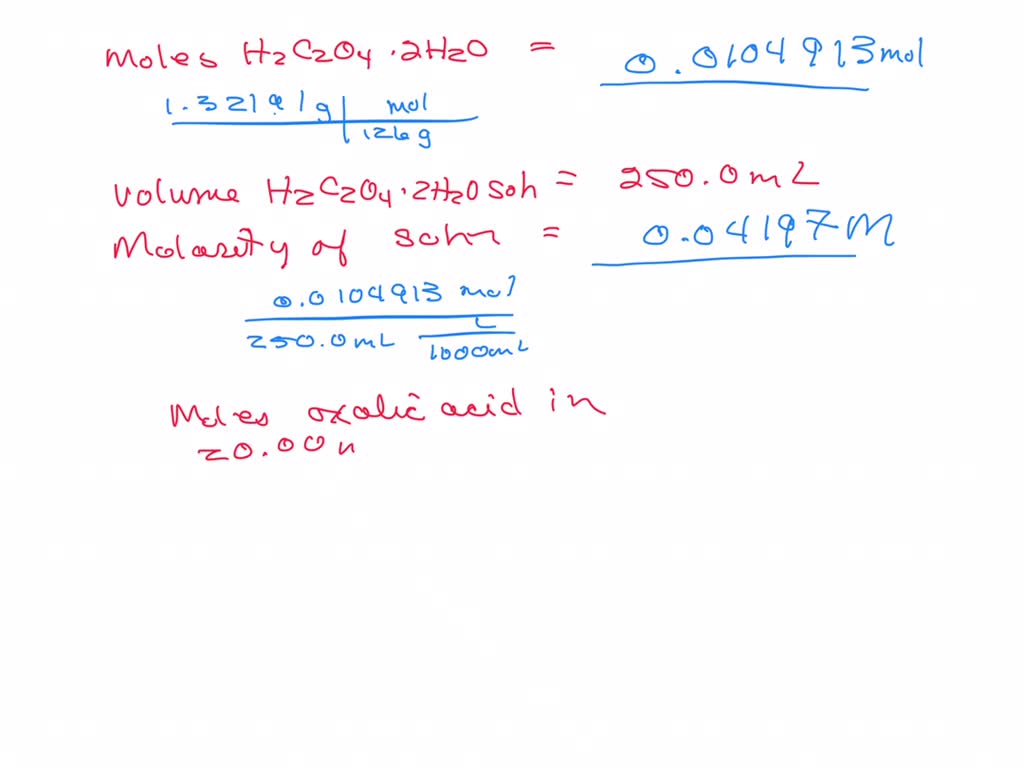 Moles H2C2O4·2H2O = 0.0104913 mol
1.32191g | mol
126g
Volume H2C2O4·2H2O soln = 250.0mL
Molarity of soln = 0.04197M
0.0104913 mol
250.0mL L
1000mL
Moles oxalic acid in
20.00